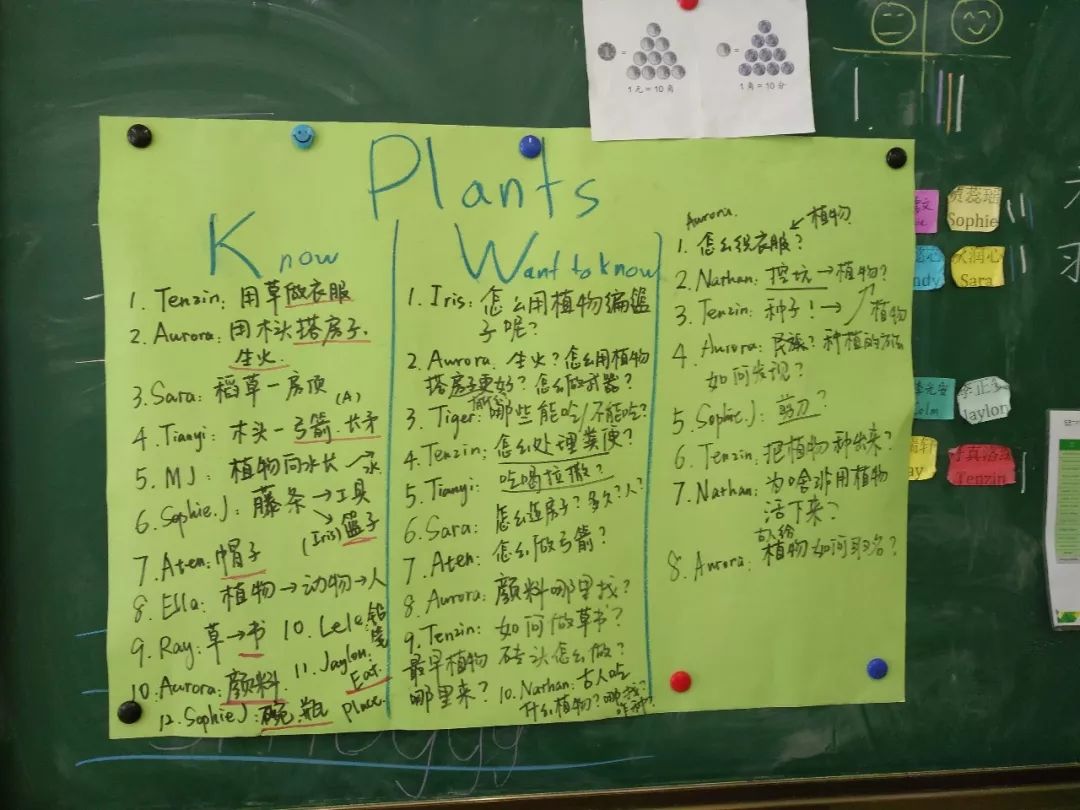 1元=10角
1角=10分
Plants
Know
1. Tenzin: 用草做衣服
2. Aurora: 用木头搭房子.
生火.
3. Sara: 稻草一房顶
(A)
4. Tianyi: 木头一弓箭 长矛
5. MJ: 植物向水长→水
6. Sophie.J: 藤条→工具
(Iris) 篮子
7. Aten: 帽子
8. Ella: 植物→动物→人
9. Ray: 草→书
10. Lele: 铅笔
10. Aurora: 颜料.
11. Jaylon: Eat.
place.
12. Sophie J: 碗,瓶
Want to know
1. Iris: 怎么用植物编篮
子呢?
2. Aurora. 生火?怎么用植物
搭房子更好?怎么做武器?
3. Tiger: 哪些能吃/不能吃?
4. Tenzin: 怎么处理粪便?
5. Tianyi: 吃喝拉撒?
6. Sara: 怎么造房子?多久?人?
7. Aten: 怎么做弓箭?
8. Aurora: 颜料哪里找?
9. Tenzin: 如何做草书?
最早植物 砖头怎么做?
哪里来?
10. Nathan: 古人吃
什么植物?哪找?
咋种?
Aurora.
植物
1. 怎么洗衣服?
2. Nathan: 挖坑→植物?
3. Tenzin: 种子!→植物
4. Aurora: 民族?种植的方法
如何发现?
5. Sophie.J: 剪刀?
6. Tenzin: 把植物种出来?
7. Nathan: 为啥非用植物
活下来?
古人给
8. Aurora: 植物如何取名?
Sophie
Sara
Jaylon
Tenzin